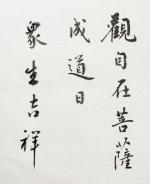 觀自在菩薩
成道日
眾生吉祥